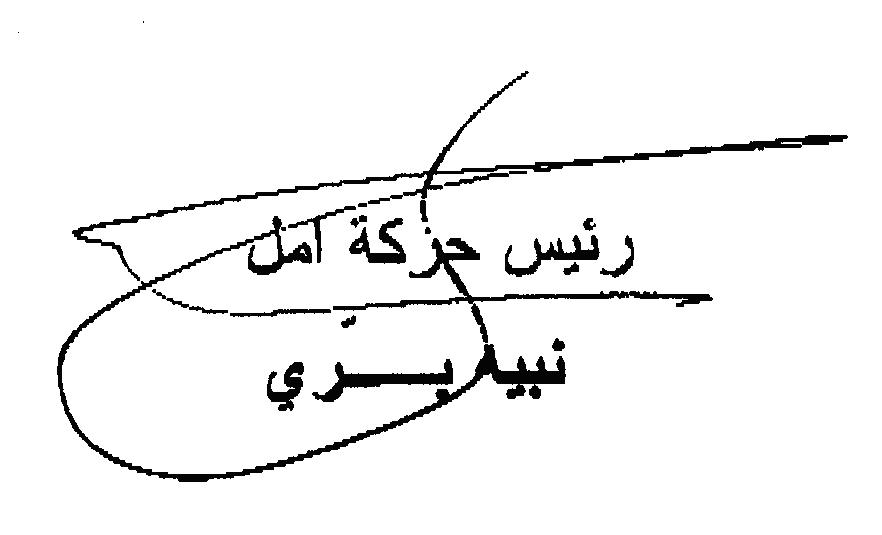 رئيس حركة امل
نبيه بـــرّي